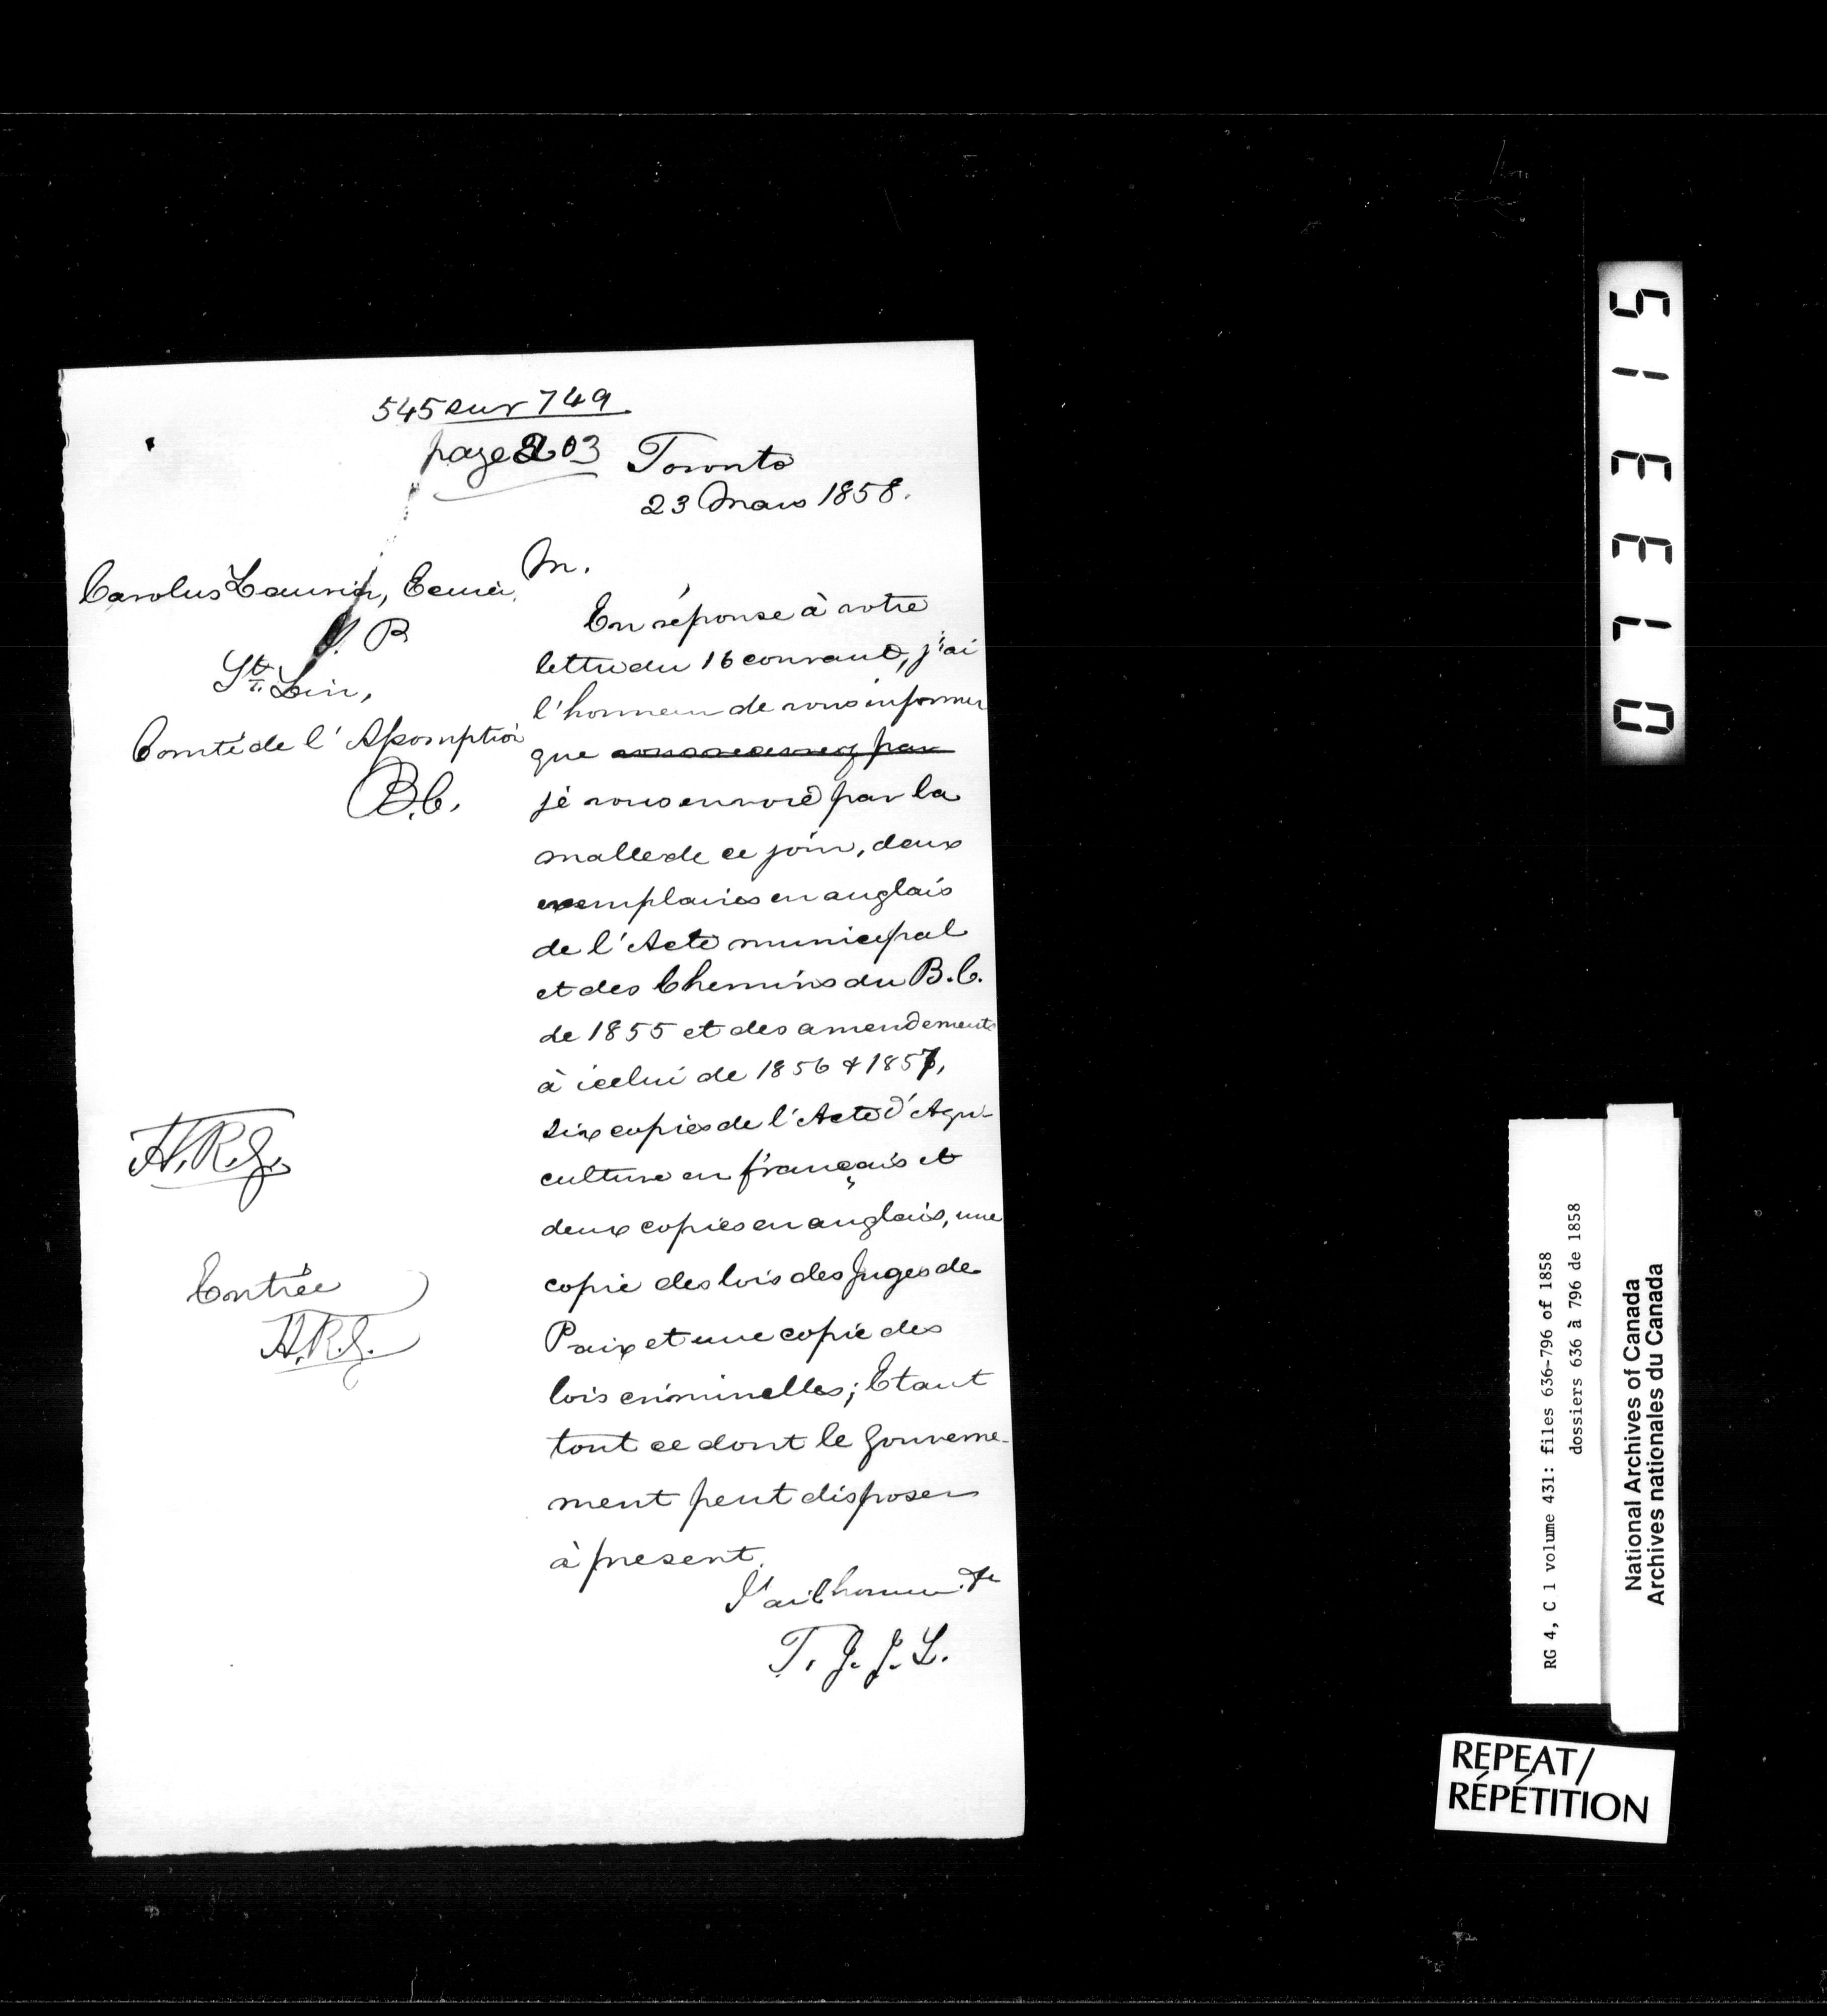 545 sur 749
page 203
Toronto
23 Mars 1858.
Carolus Laurier, Ecuier,
J. P.
St. Lin,
Comté de l'Assomption
B.C.
M.
En réponse à votre
lettre du 16 courant, j'ai
l'honneur de vous informer
que
je vous envoie par la
malle de ce jour, deux
exemplaires en anglais
de l'Acte municipal
et des Chemins du B.C.
de 1855 et des amendements
à icelui de 1856 & 1857,
six copies de l'Acte d'Agri-
culture en français et
deux copies en anglais, une
copie des lois des Juges de
Paix et une copie des
lois criminelles; Etant
tout ce dont le Gouverne-
ment peut disposer
à present.
J'ai l'honneur &c
T. J. J. L.
H.R.G.
Entrée
H.R.G.
51331 0
RG 4, C 1 volume 431: files 636-796 of 1858
dossiers 636 à 796 de 1858
National Archives of Canada
Archives nationales du Canada
REPEAT/
RÉPÉTITION